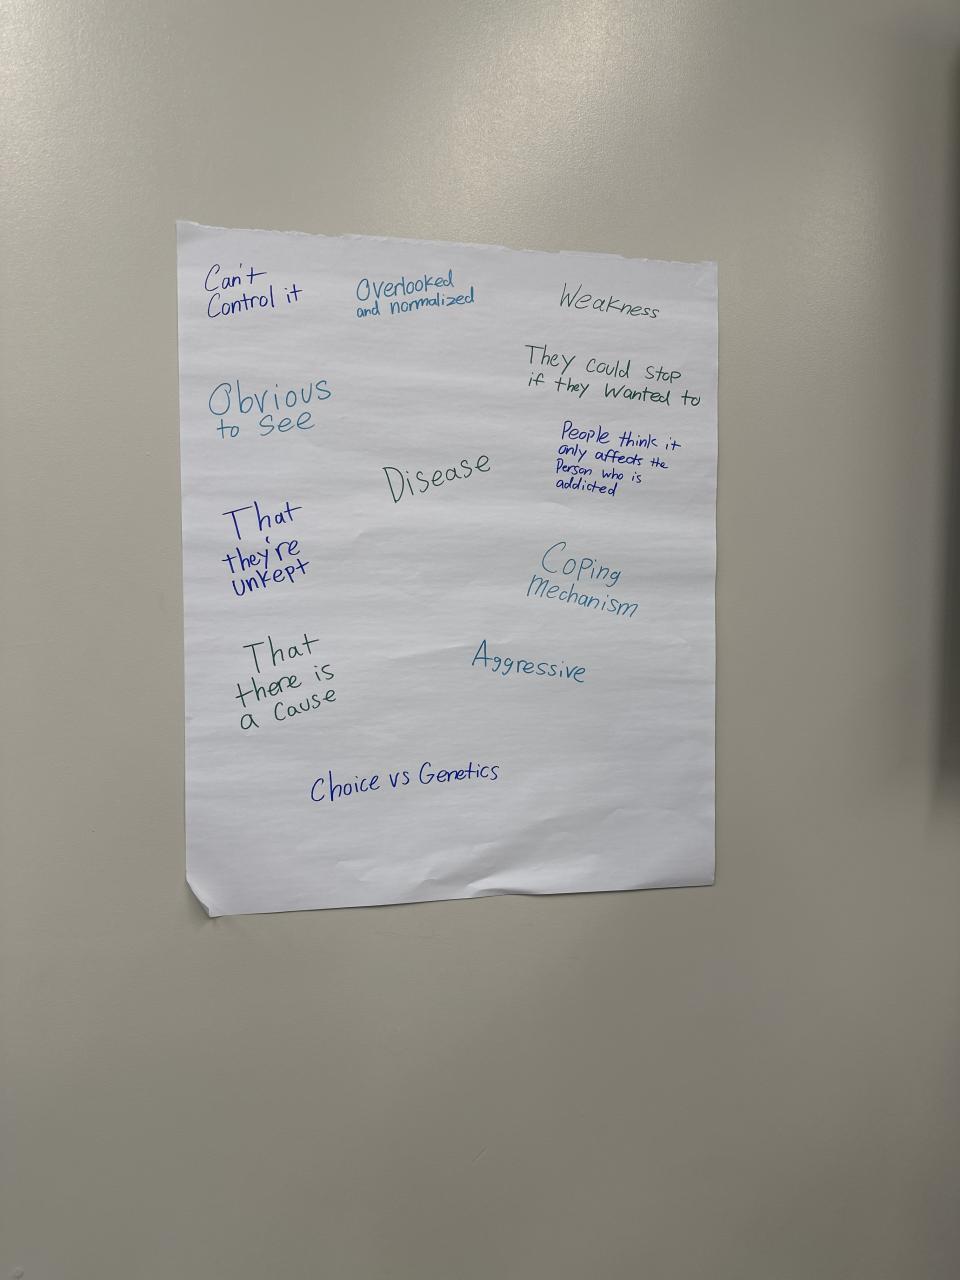 Can't
Control it
Overlooked
and normalized
Weakness
They could stop
if they wanted to
Obvious
to see
People think it
only affects the
Person who is
addicted
Disease
That
they're
unkept
Coping
Mechanism
That
there is
a cause
Aggressive
Choice vs Genetics